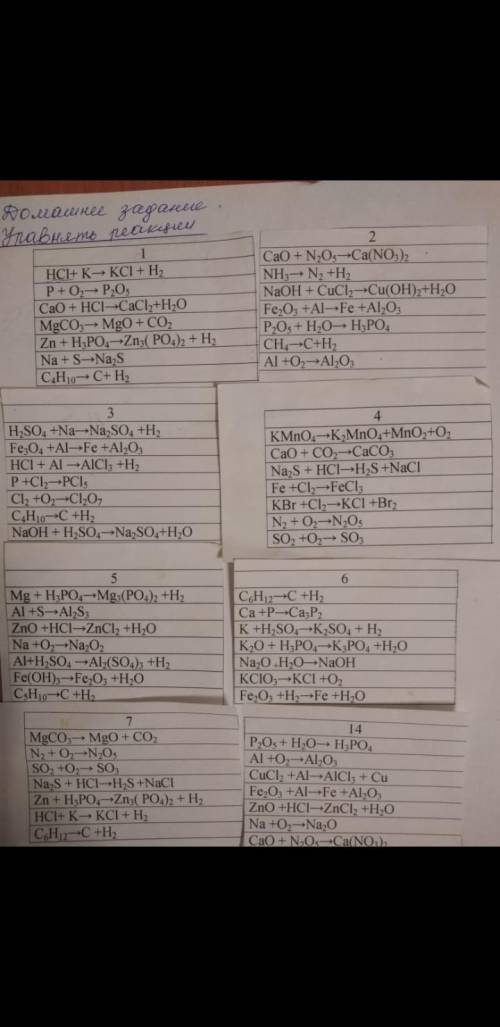 Домашнее задание.
Уравнять реакции
1
HCl+ K→ KCl + H₂
P + O₂→ P₂O₅
CaO + HCl→CaCl₂+H₂O
MgCO₃→ MgO + CO₂
Zn + H₃PO₄→Zn₃( PO₄)₂ + H₂
Na + S→Na₂S
C₄H₁₀→ C+ H₂
2
CaO + N₂O₅→Ca(NO₃)₂
NH₃→ N₂ +H₂
NaOH + CuCl₂→Cu(OH)₂+H₂O
Fe₂O₃ +Al→Fe +Al₂O₃
P₂O₅ + H₂O→ H₃PO₄
CH₄→C+H₂
Al +O₂→Al₂O₃
3
H₂SO₄ +Na→Na₂SO₄ +H₂
Fe₃O₄ +Al→Fe +Al₂O₃
HCl + Al →AlCl₃ +H₂
P +Cl₂→PCl₅
Cl₂ +O₂→Cl₂O₇
C₄H₁₀→C +H₂
NaOH + H₂SO₄→Na₂SO₄+H₂O
4
KMnO₄→K₂MnO₄+MnO₂+O₂
CaO + CO₂→CaCO₃
Na₂S + HCl→H₂S +NaCl
Fe +Cl₂→FeCl₃
KBr +Cl₂→KCl +Br₂
N₂ + O₂→N₂O₅
SO₂ +O₂→ SO₃
5
Mg + H₃PO₄→Mg₃(PO₄)₂ +H₂
Al +S→Al₂S₃
ZnO +HCl→ZnCl₂ +H₂O
Na +O₂→Na₂O₂
Al+H₂SO₄ →Al₂(SO₄)₃ +H₂
Fe(OH)₃→Fe₂O₃ +H₂O
C₅H₁₀→C +H₂
6
C₆H₁₂→C +H₂
Ca +P→Ca₃P₂
K +H₂SO₄→K₂SO₄ + H₂
K₂O + H₃PO₄→K₃PO₄ +H₂O
Na₂O +H₂O→NaOH
KClO₃→KCl +O₂
Fe₂O₃ +H₂→Fe +H₂O
7
MgCO₃→ MgO + CO₂
N₂ + O₂→N₂O₅
SO₂ +O₂→ SO₃
Na₂S + HCl→H₂S +NaCl
Zn + H₃PO₄→Zn₃( PO₄)₂ + H₂
HCl+ K→ KCl + H₂
C₆H₁₂→C +H₂
14
P₂O₅ + H₂O→ H₃PO₄
Al +O₂→Al₂O₃
CuCl₂ +Al→AlCl₃ + Cu
Fe₂O₃ +Al→Fe +Al₂O₃
ZnO +HCl→ZnCl₂ +H₂O
Na +O₂→Na₂O
CaO + N₂O₅→Ca(NO₃)₂